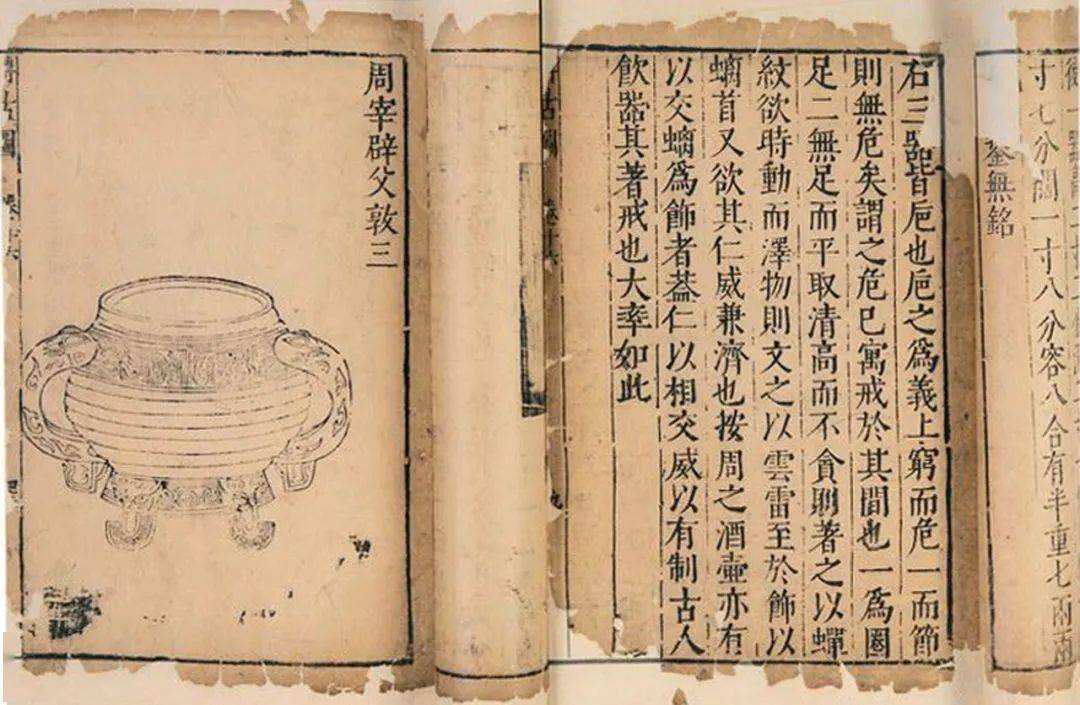 寸七分闊一寸八分容八合有半重七兩兩
鋬無銘
右三器皆巵也巵之爲義上窮而危一而節
則無危矣謂之危巳寓戒於其間也一爲圈
足二無足而平取清高而不貪則著之以蟬
紋欲時動而澤物則文之以雲雷至於飾以
螭首又欲其仁威兼濟也按周之酒壷亦有
以交螭爲飾者葢仁以相交威以有制古人
飲器其著戒也大率如此
周宰辟父敦三
博古圖